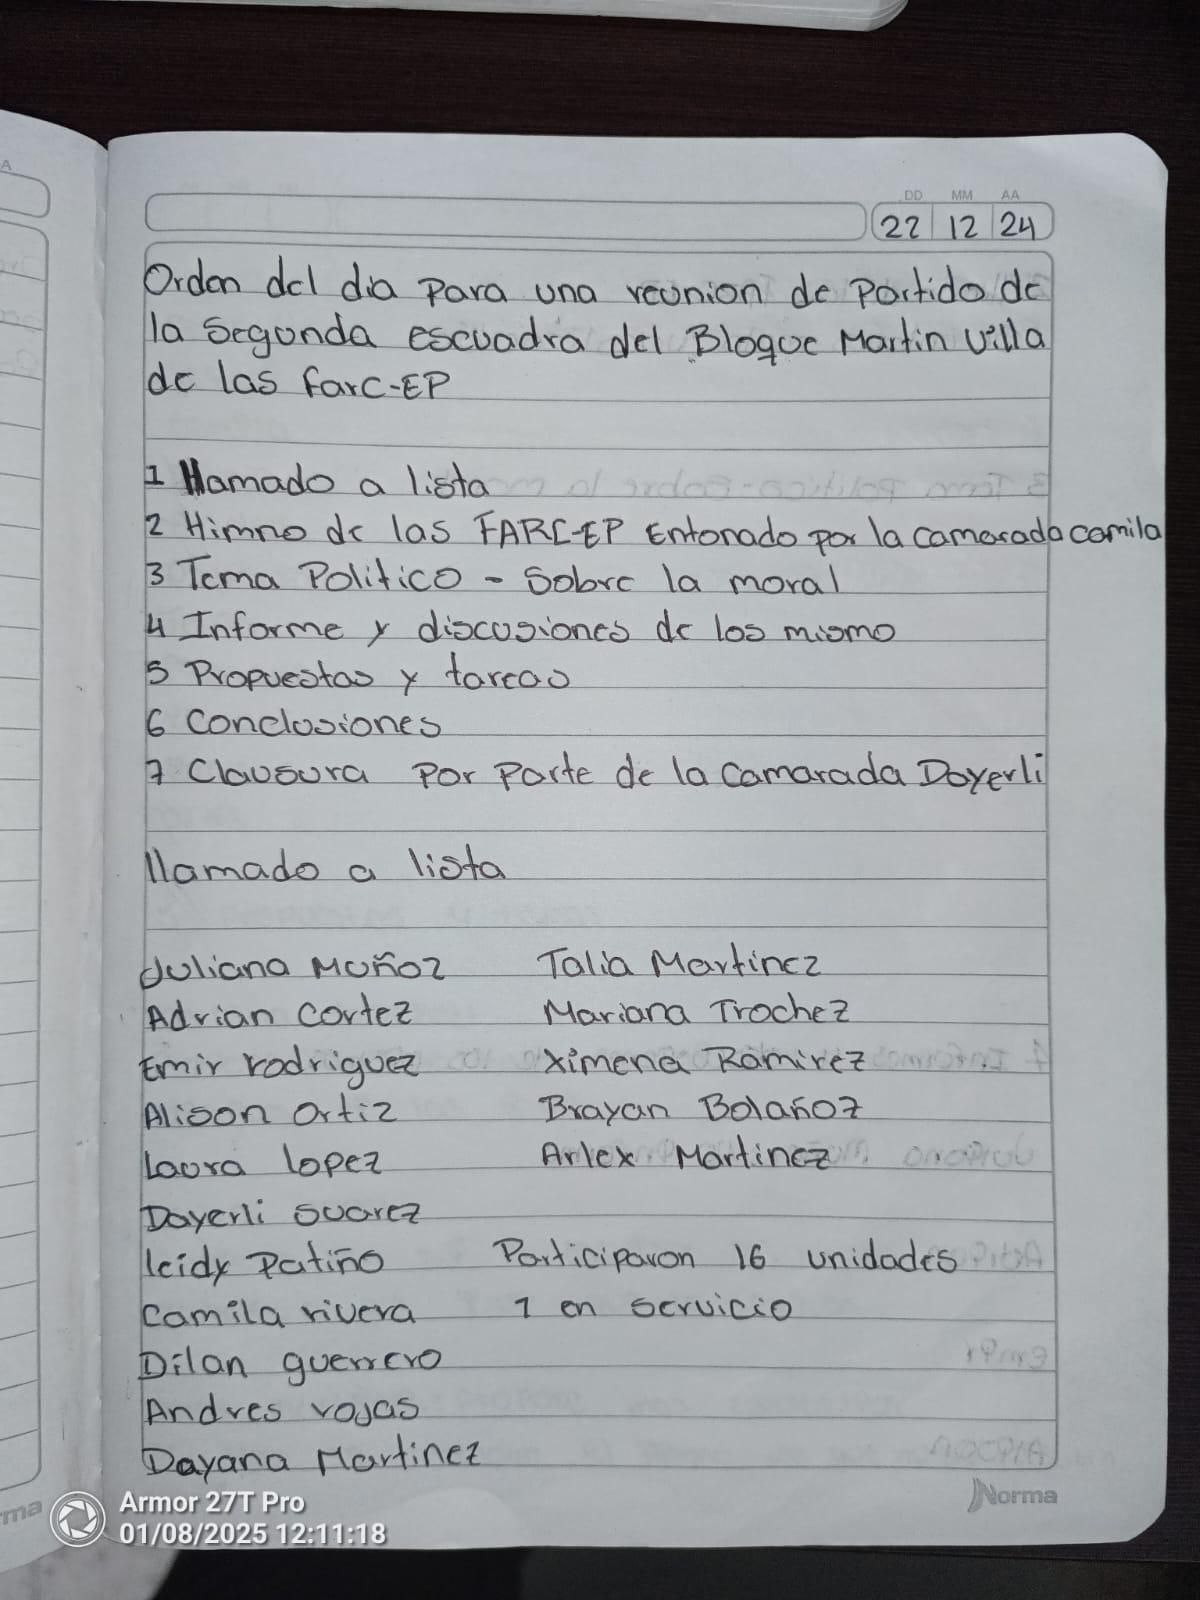 DD MM AA
22 12 24
Orden del dia Para una reunion de Partido de
la Segunda escuadra del Bloque Martin Villa
de las farc-EP
1 Llamado a lista
2 Himno de las FARC-EP Entonado por la camarada camila
3 Tema Politico - Sobre la moral
4 Informe y discusiones de los mismo
5 Propuestas y tareas
6 Conclusiones
7 Clausura Por Parte de la Camarada Dayerli
llamado a lista
Juliana Muñoz
Adrian Cortez
Emir rodriguez
Alison Ortiz
Laura lopez
Dayerli suarez
leidy Patiño
Camila rivera
Dilan guerrero
Andres rojas
Dayana Martinez
Talia Martinez
Mariana Trochez
Ximena Ramirez
Brayan Bolañoz
Arlex Martinez
Participaron 16 unidades
1 en servicio
Norma
Armor 27T Pro
01/08/2025 12:11:18